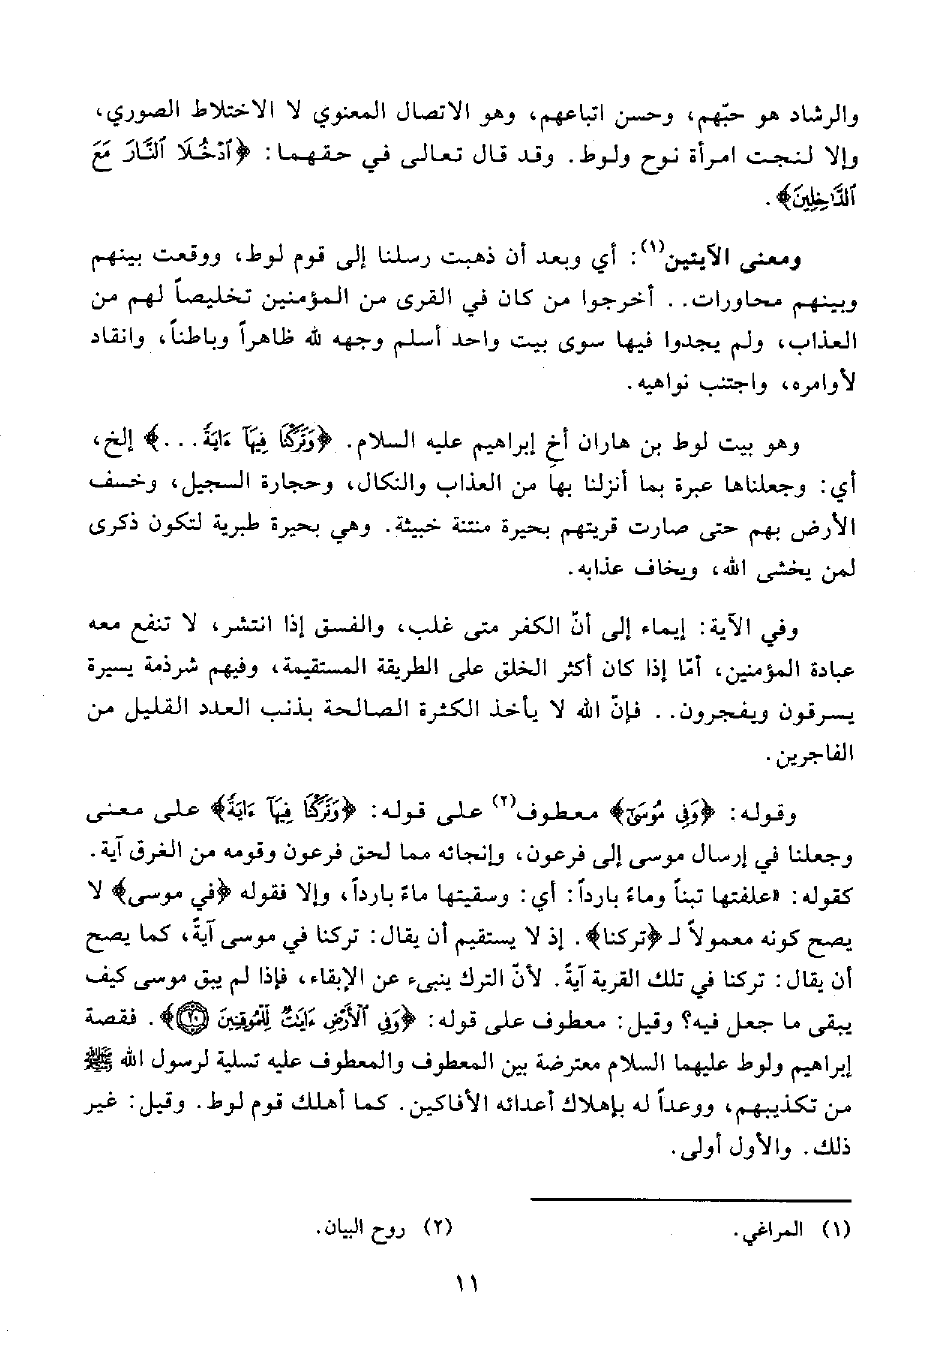 والرشاد هو حبّهم، وحسن اتباعهم، وهو الاتصال المعنوي لا الاختلاط الصوري،
وإلا لنجت امرأة نوح ولوط. وقد قال تعالى في حقهما: ﴿ٱدْخُلَا ٱلنَّارَ مَعَ
ٱلدَّٰخِلِينَ﴾.
ومعنى الآيتين(١): أي وبعد أن ذهبت رسلنا إلى قوم لوط، ووقعت بينهم
وبينهم محاورات.. أخرجوا من كان في القرى من المؤمنين تخليصاً لهم من
العذاب، ولم يجدوا فيها سوى بيت واحد أسلم وجهه لله ظاهراً وباطناً، وانقاد
لأوامره، واجتنب نواهيه.
وهو بيت لوط بن هاران أخِ إبراهيم عليه السلام. ﴿وَتَرَكْنَا فِيهَآ ءَايَةً...﴾ إلخ،
أي: وجعلناها عبرة بما أنزلنا بها من العذاب والنكال، وحجارة السجيل، وخسف
الأرض بهم حتى صارت قريتهم بحيرة منتنة خبيثة. وهي بحيرة طبرية لتكون ذكرى
لمن يخشى الله، ويخاف عذابه.
وفي الآية: إيماء إلى أنّ الكفر متى غلب، والفسق إذا انتشر، لا تنفع معه
عبادة المؤمنين، أمّا إذا كان أكثر الخلق على الطريقة المستقيمة، وفيهم شرذمة يسيرة
يسرقون ويفجرون.. فإنّ الله لا يأخذ الكثرة الصالحة بذنب العدد القليل من
الفاجرين.
وقوله: ﴿وَفِي مُوسَىٰٓ﴾ معطوف(٢) على قوله: ﴿وَتَرَكْنَا فِيهَآ ءَايَةً﴾ على معنى
وجعلنا في إرسال موسى إلى فرعون، وإنجائه مما لحق فرعون وقومه من الغرق آية.
كقوله: «علفتها تبناً وماءً بارداً: أي: وسقيتها ماءً بارداً، وإلا فقوله ﴿في موسى﴾ لا
يصح كونه معمولاً لـ ﴿تركنا﴾. إذ لا يستقيم أن يقال: تركنا في موسى آيةً، كما يصح
أن يقال: تركنا في تلك القرية آيةً. لأنّ الترك ينبىء عن الإبقاء، فإذا لم يبق موسى كيف
يبقى ما جعل فيه؟ وقيل: معطوف على قوله: ﴿وَفِي ٱلْأَرْضِ ءَايَٰتٌ لِّلْمُوقِنِينَ ۝٢٠﴾. فقصة
إبراهيم ولوط عليهما السلام معترضة بين المعطوف والمعطوف عليه تسلية لرسول الله ﷺ
من تكذيبهم، ووعداً له بإهلاك أعدائه الأفاكين. كما أهلك قوم لوط. وقيل: غير
ذلك. والأول أولى.
(١) المراغي. (٢) روح البيان.
١١